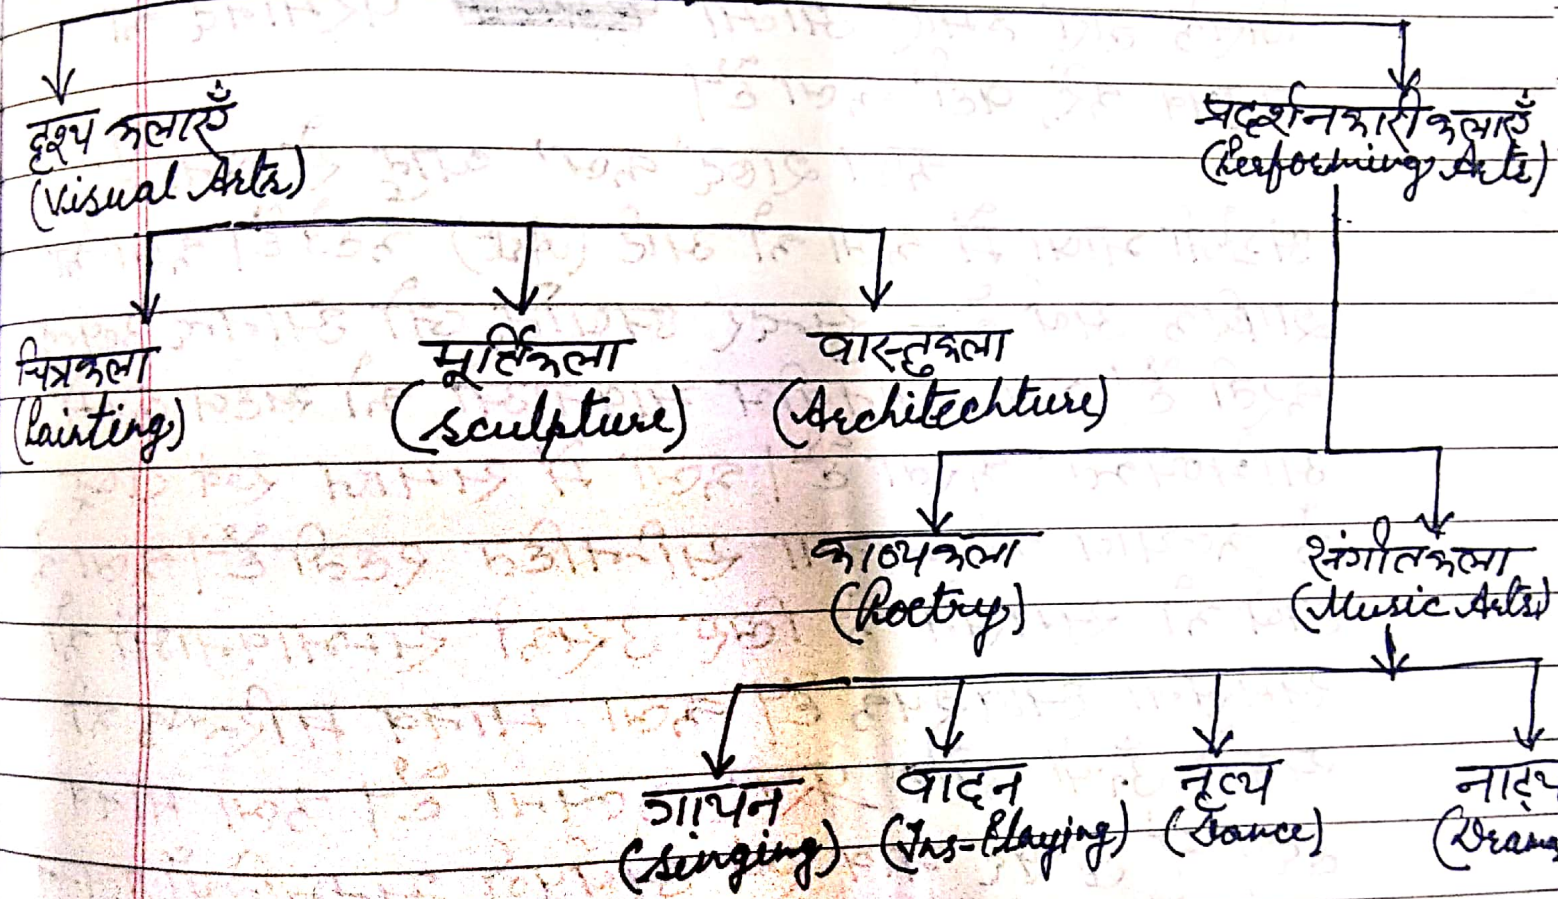 दृश्य कलाएँ
(Visual Arts)
प्रदर्शनकारी कलाएँ
(Performing Arts)
चित्रकला
(Painting)
मूर्तिकला
(Sculpture)
वास्तुकला
(Architechture)
काव्यकला
(Poetry)
संगीतकला
(Music Arts)
गायन
(Singing)
वादन
(Ins-Playing)
नृत्य
(Dance)
नाट्य
(Drama